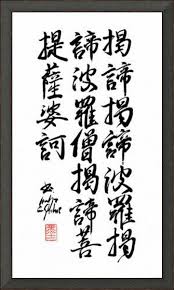 揭諦揭諦波羅揭
諦波羅僧揭諦菩
提薩婆訶